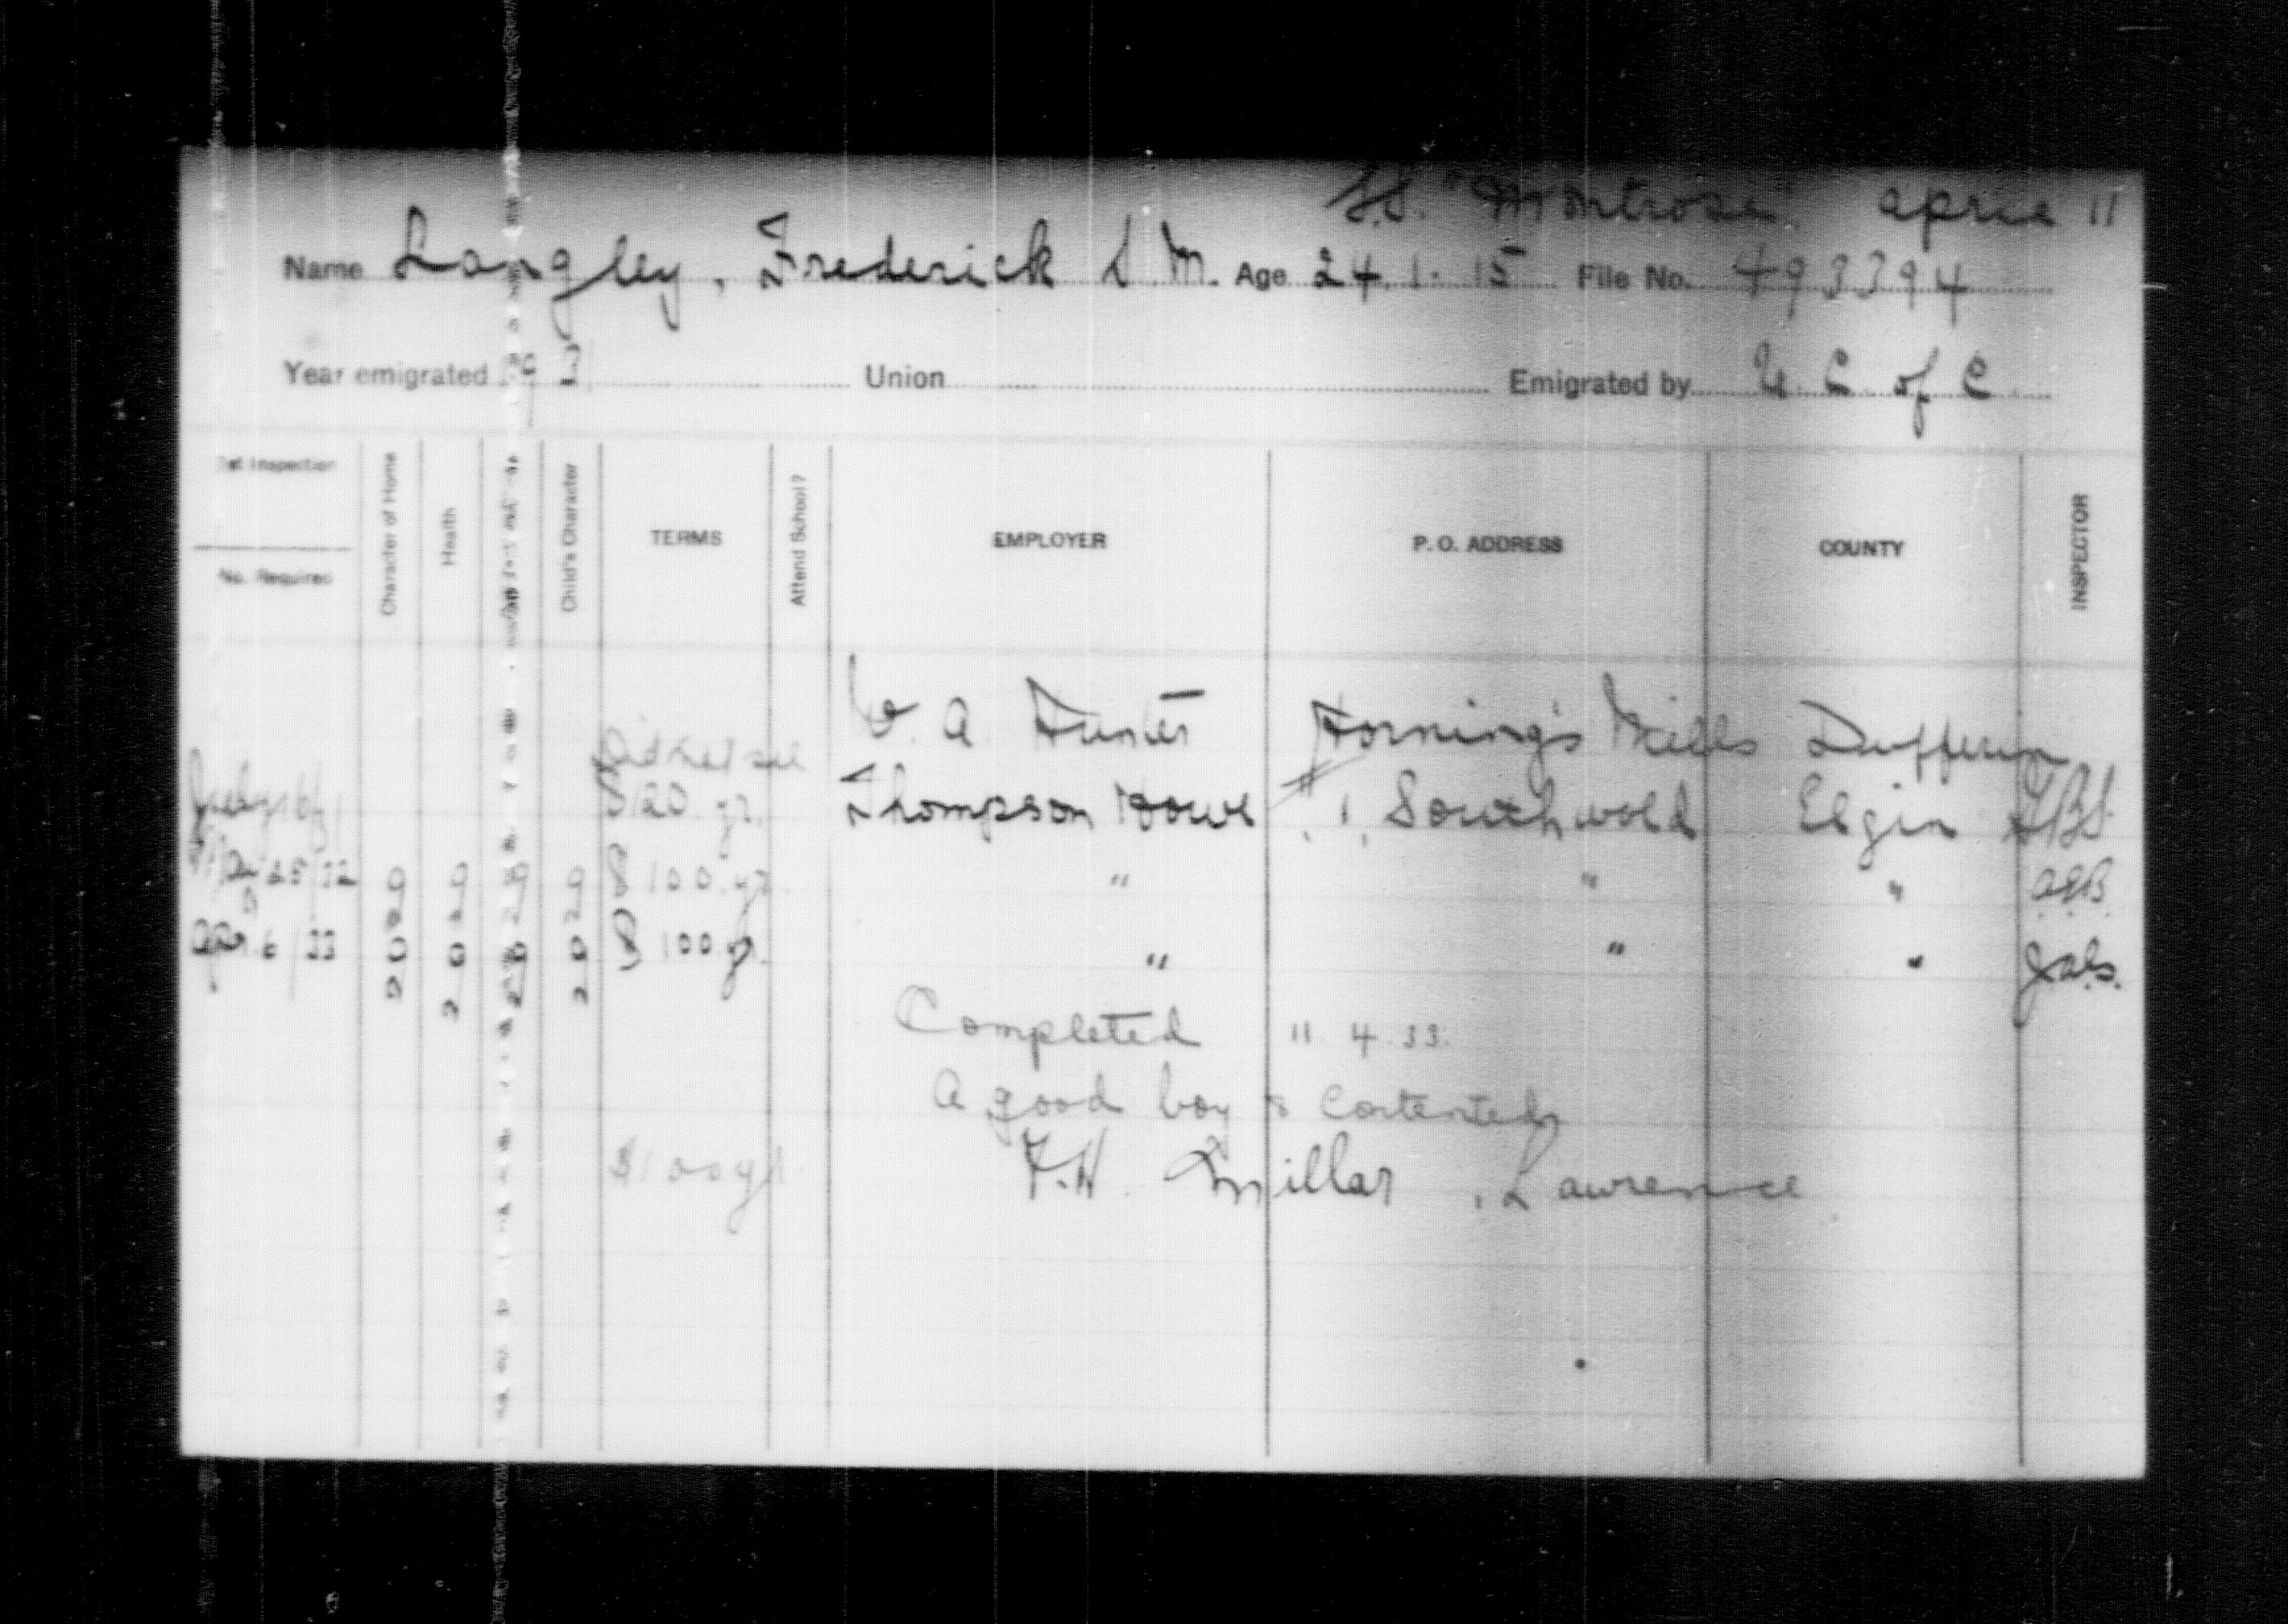 S.S. "Montrose" April 11
Name Langley, Frederick L M. Age 24. 1. 15 File No. 493394
Year emigrated 1931 Union Emigrated by U. C of C
1st Inspection
No. Required
Character of Home
Health
Child's Character
TERMS
Attend School?
EMPLOYER
P. O. ADDRESS
COUNTY
INSPECTOR
W. A. Hunter Horning's Mills Dufferin
Did not see
July 16/31 $120 yr. Thompson Howe #1, Southwold Elgin
25/32 $100 yr " " "
Apr 6/33 $100 yr. " " "
Completed 11. 4. 33.
A good boy & contented
$100 yr F. H. Millar, Lawrence